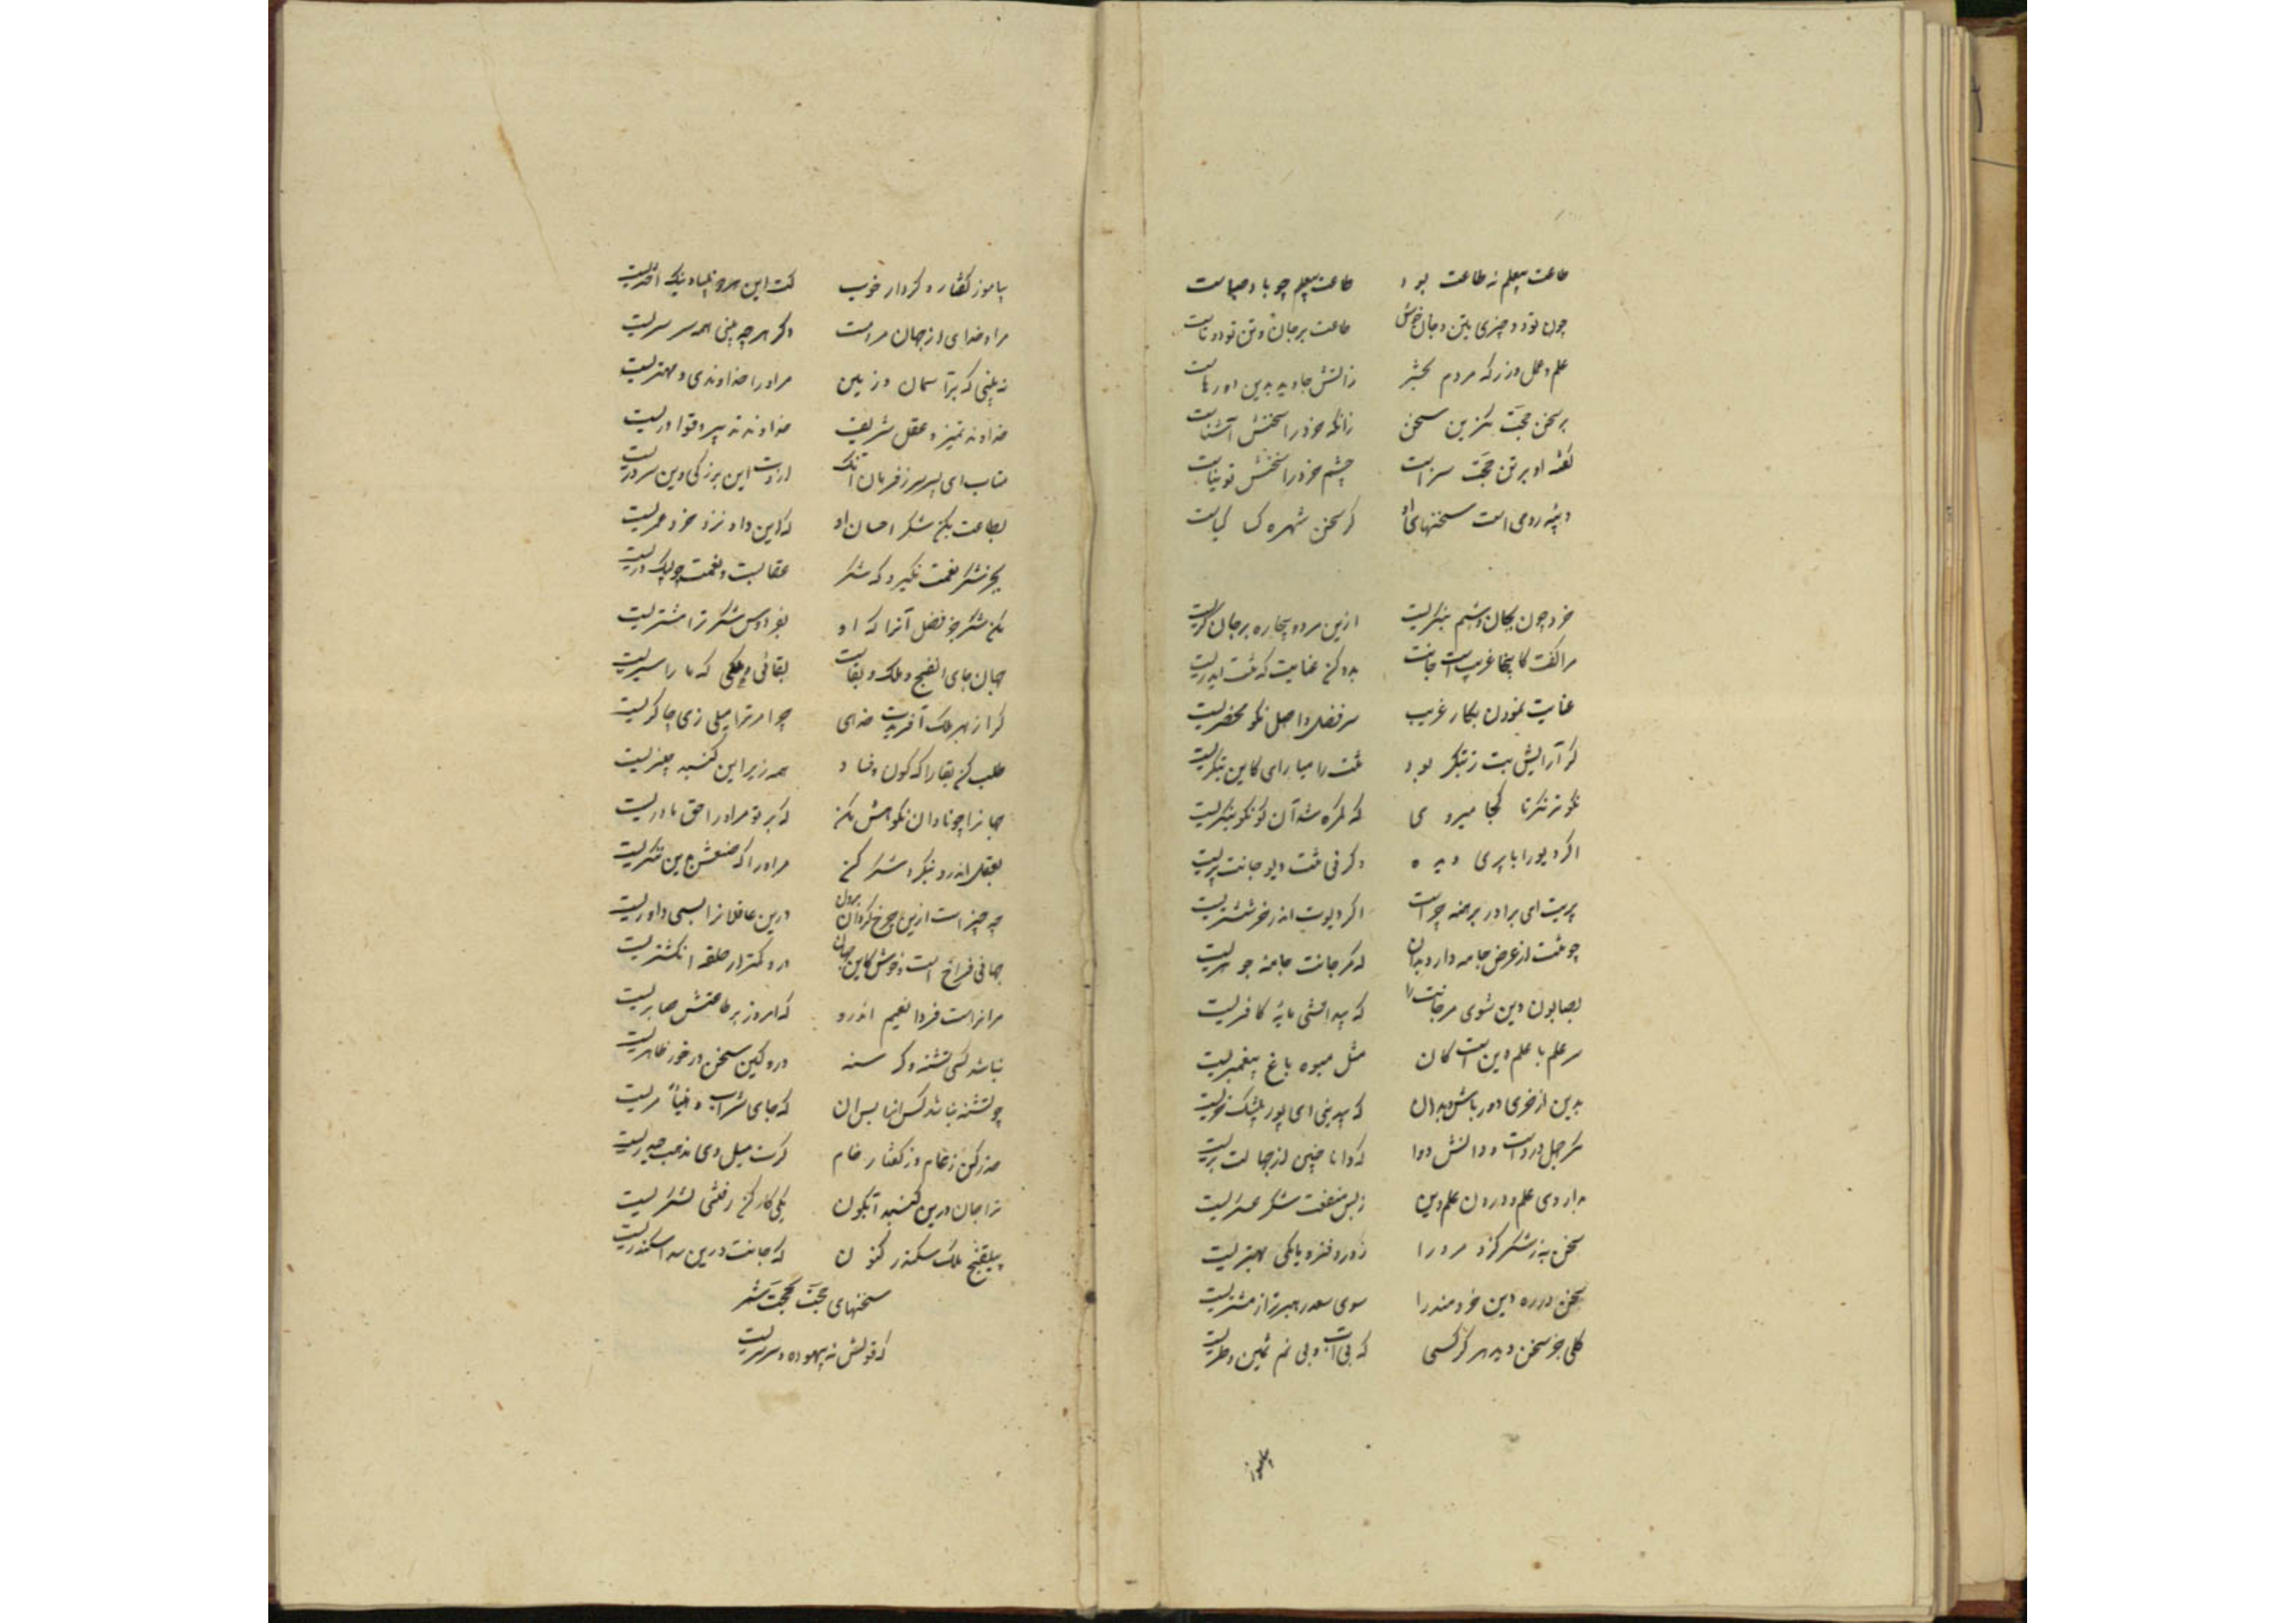 طاعت بیعلم نه طاعت بود طاعت بیعلم چو باد صباست
چون تو دو چیزی بتن و جان خویش طاعت بر جان و تن تو دوتاست
علم و عمل ورز که مردم بحشر زاتش جاوید بدین دو رهاست
بر سخن حجت مگزین سخن زانکه خرد را سخنش آشناست
گفتهٔ او بر تن حجت سر است چشم خرد را سخنش توتیاست
دیبه رومی است سخنهای او گر سخن شهره کسا کیاست
خرد چون بجان و تنم بنگریست ازین هر دو بیچاره بر جان گریست
مرا گفت کاینجا غریب است جانت بدو کن عنایت که تنت ایدریست
عنایت نمودن بکار غریب سر فضل و اصل نکو محضریست
گر آرایش بت ز بتگر بود تنت را میارای کاین بتگریست
نکوتر نگر تا کجا میروی که گمره شد آن کو نکو ننگریست
اگر دیو را با پری دیده وگرنی تنت دیو جانت پریست
پریت ای برادر برهنه چراست اگر دیوت اندر خز ششتریست
چو تنت از عرض جامه دارد بدان که مر جانت جامه جوهریست
بصابون دین شوی مر جانت را که بیدانشی مایهٔ کافریست
سر علم با علم دین است کان مثل میوه باغ پیغمبریست
بدین از خری دور باش و بدان که بیدینی ای پور بیشک خریست
مگر جهل درد است و دانش دوا که دانا چنین از جهالت بریست
بداروی علم و درون علم دین ز بس منفعت شکر عسکریست
سخن به ز شکر کزو مرد را ز درد فرومایگی بهتریست
سخن در ره دین خردمند را سوی سعد رهبرتر از مشتریست
گلی جز سخن دید هرگز کسی که بی آب و بی نم ثمین و طریست
بیاموز
بیاموز گفتار و کردار خوب کت این هر دو بنیاد نیک اختریست
مراد خدای از جهان مردمست دگر هر چه بینی همه سرسریست
نه بینی که بر آسمان و زمین مر او را خداوندی و مهتریست
خداوند تمییز و عقل شریف خداوند تدبیر و قول دریست
متاب ای پسر سر ز فرمان آنک ازوت این بزرگی و این سروریست
بطاعت بکن شکر احسان او که این داد نزد خرد عمریست
بجز شکر نعمت نگیرد که شکر عقابیست و نعمت چو کبک دریست
بکن شکر جز فضل آنرا که او بفردوس شکر ترا مشتریست
جهان جای الفنج و ملک و بقاست بقائی و ملکی که نا اسپریست
گر از بهر ملک آفریدت خدای چرا مر ترا میل زی چاکریست
طلب کن بقا را که کون و فساد همه زیر این گنبد چنبریست
جهانرا چو نادان نکوهش مکن که بر تو مر او را حق مادریست
بعقل اندرو بنگر و شکر کن مر او را که صنعش بدین منکریست
چه چیز است ازین چرخ گردان برون درین عاقلانرا بسی داوریست
جهانی فراخ است و خوش کاین جهان درو کمتر از حلقهٔ انگشتریست
مر انراست فردا نعیم اندرو که امروز بر طاعتش صابریست
نباشد کسی تشنه و گرسنه درو کین سخن در خور ظاهریست
چو تشنه نباشد کس آنجا پس آن که جای شراب هنیأ مریست
حذر کن ز عام وز گفتار خام گرت میل زی مذهب حیدریست
ترا جان درین گنبد آبگون یکی کار کن رفتنی لشکریست
بیلفنج ملک سکندر کنون که جانت درین سد اسکندریست
سخنهای حجت بحجت شنو
که قولش نه بیهوده و سرسریست